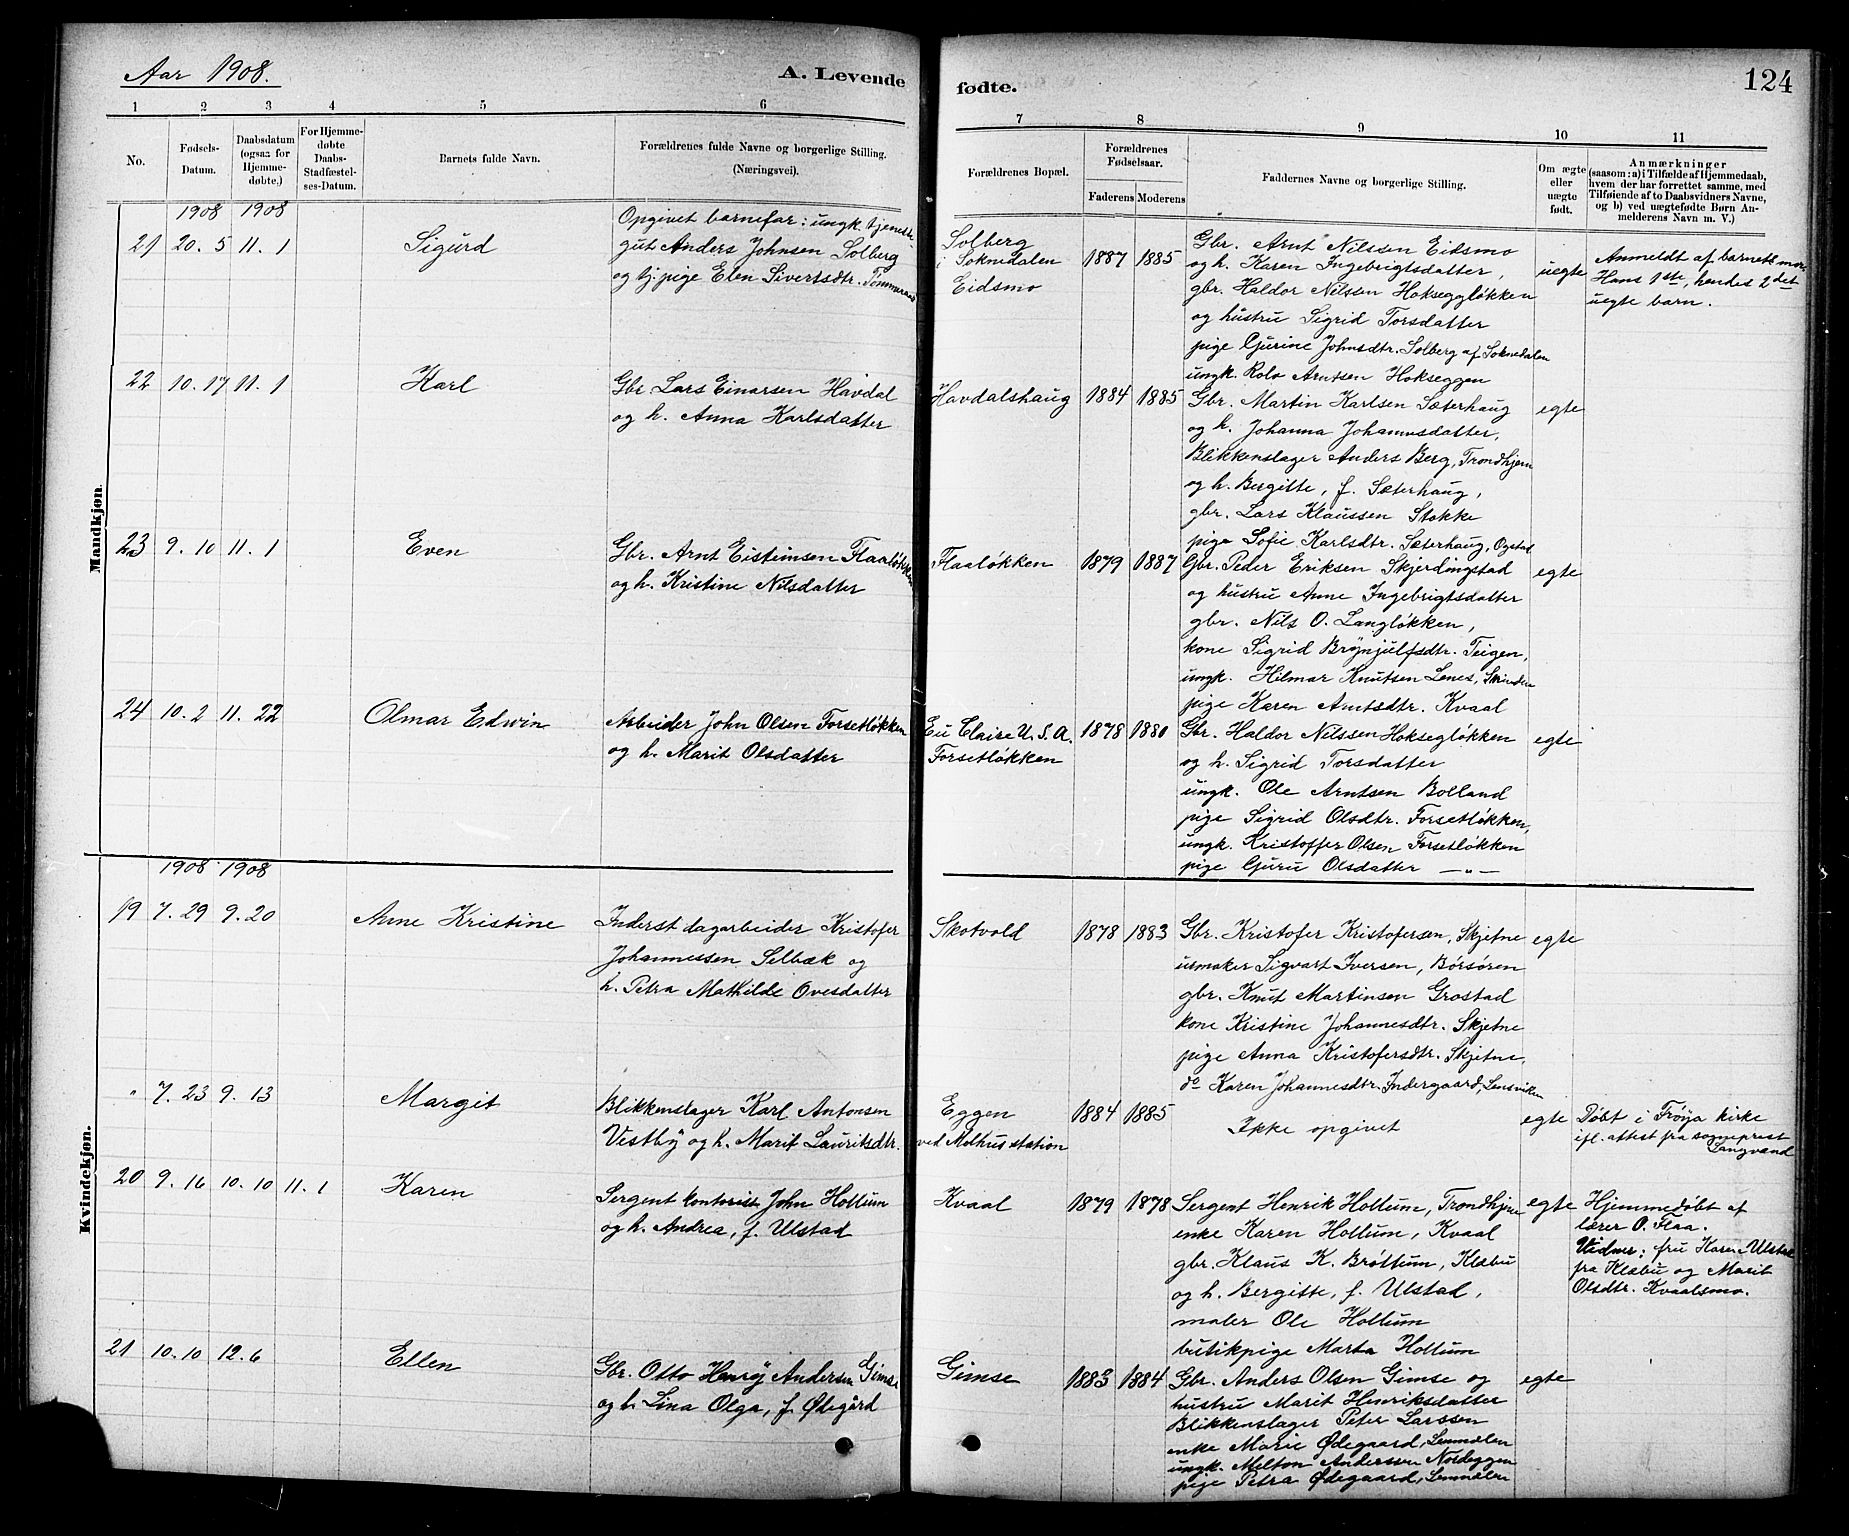 Aar 1908.
A. Levende
fødte.
124
1 2 3 4 5 6
7 8 9 10 11
No.
Fødsels-
Datum.
Daabsdatum
(ogsaa for
Hjemme-
døbte.)
For Hjemme-
døbte
Daabs-
Stadfæstel-
ses-Datum.
Barnets fulde Navn.
Forældrenes fulde Navne og borgerlige Stilling.
(Næringsvei).
Forældrenes Bopæl.
Forældrenes
Fødselsaar.
Faderens Moderens
Faddernes Navne og borgerlige Stilling.
Om ægte
eller
uægte
født.
Anmærkninger
(saasom: a) i Tilfælde af Hjemmedaab,
hvem der har forrettet samme, med
Tilføiende af to Daabsvidners Navne,
og b) ved uægtefødte Børn An-
melderens Navn m. V.)
Mandkjøn.
1908 1908
21 20. 5 11. 1
Sigurd
Opgivet barnefar: ungk. tjeneste-
gut Anders Johnsen Solberg
og tj.pige Elen Sivertsdtr.
Solberg
i Soknedalen
Eidsmo
1887 1885
Gbr. Arnt Nilssen Eidsmo
og h. Karen Ingebrigtsdatter,
gbr. Haldor Nilssen Hokseggløkken
og hustru Sigrid Torsdatter
pige Gjurine Johnsdtr. Solberg af Soknedalen
ungk. Rolv Arntsen Hokseggen
uegte
Anmeldt af barnets mor.
Hans 1ste, hendes 2det
uegte barn.
22 10. 17 11. 1
Karl
Gbr. Lars Einarsen Havdal
og h. Anna Karlsdatter
Havdalshaug
1884 1885
Gbr. Martin Karlsen Sæterhaug
og h. Johanna Johannesdatter,
Blikkenslager Anders Berg, Trondhjem
og h. Bergitte, f. Sæterhaug,
gbr. Lars Klaussen Stokke
pige Sofie Karlsdtr. Sæterhaug, Ogstad
egte
23 9. 10 11. 1
Even
Gbr. Arnt Eisteinsen Flaaløkken
og h. Kristine Nilsdatter
Flaaløkken
1879 1887
Gbr. Peder Eriksen Skjerdingstad
og hustru Anne Ingebrigtsdatter
gbr. Nils O. Langløkken,
kone Sigrid Brynjulfsdtr. Teigen,
ungk. Hilmar Knutsen Lenes,
pige Karen Arntsdtr. Kvaal
egte
24 10. 2 11. 22
Olmar Edwin
Arbeider John Olsen Forsetløkken
og h. Marit Olsdatter
Eu Claire U. S. A.
Forsetløkken
1878 1880
Gbr. Haldor Nilssen Hoksegløkken
og h. Sigrid Torsdatter
ungk. Ole Arntsen Bolland
pige Sigrid Olsdtr. Forsetløkken,
ungk. Kristoffer Olsen Forsetløkken
pige Guru Olsdatter —"—
egte
Kvindekjøn.
1908 1908
19 7. 29 9. 20
Anne Kristine
Inderst dagarbeider Kristofer
Johannessen Selbæk og
h. Petra Mathilde Ovesdatter
Skotvold
1878 1883
Gbr. Kristofer Kristofersen, Skjetne
urmaker Sigvart Iversen, Børsøren
gbr. Knut Martinsen Grostad
kone Kristine Johannesdtr. Skjetne
pige Anna Kristofersdtr. Skjetne,
do Karen Johannesdtr. Indergaard, Lensviken
egte
" 7. 23 9. 13
Margit
Blikkenslager Karl Antonsen
Vestby og h. Marit Lauritsdtr.
Eggen
ved Melhus station
1884 1885
Ikke opgivet
egte
Døbt i Frøya kirke
ifl. attest fra sogneprest
Langvand
20 9. 16 10. 10 11. 1
Karen
Sergent kontorist John Hollum
og h. Andrea, f. Ulstad
Kvaal
1879 1878
Sergent Henrik Hollum, Trondhjem
enke Karen Hollum, Kvaal
gbr. Klaus K. Brøttum, Klæbu
og h. Bergitte, f. Ulstad,
maler Ole Hollum
butikpige Marta Hollum
egte
Hjemmedøbt af
lærer O. Flaa.
Vidner: fru Karen Ulstad
fra Klæbu og Marit
Olsdtr. Kvaalsmo.
21 10. 10 12. 6
Ellen
Gbr. Otto Henry Andersen Gimse
og h. Lina Olga, f. Ødegård
Gimse
1883 1884
Gbr. Anders Olsen Gimse og
hustru Marit Henriksdatter
Blikkenslager Peter Larssen
enke Marie Ødegaard, Leinsdalen
ungk. Melton Anderssen Nordeggen
pige Petra Ødegaard,
egte